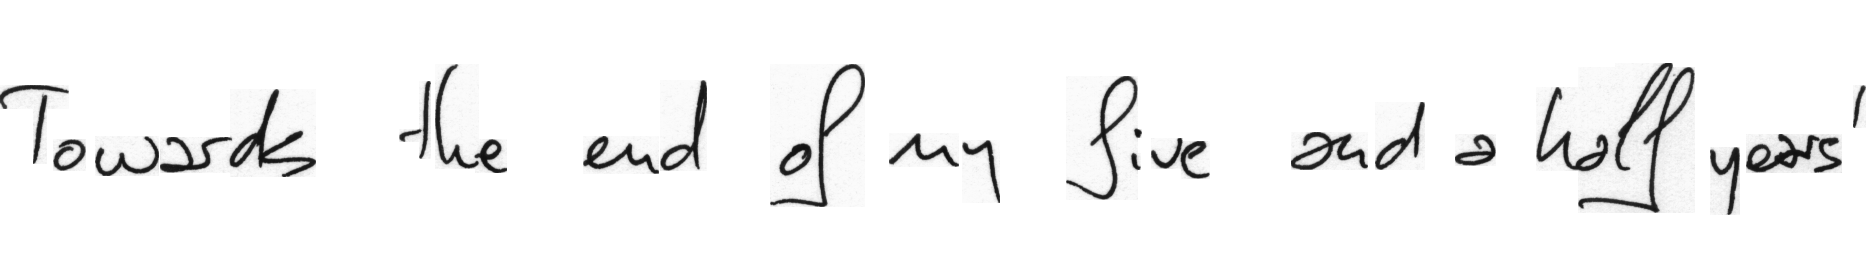 Towards the end of my five and a half years'